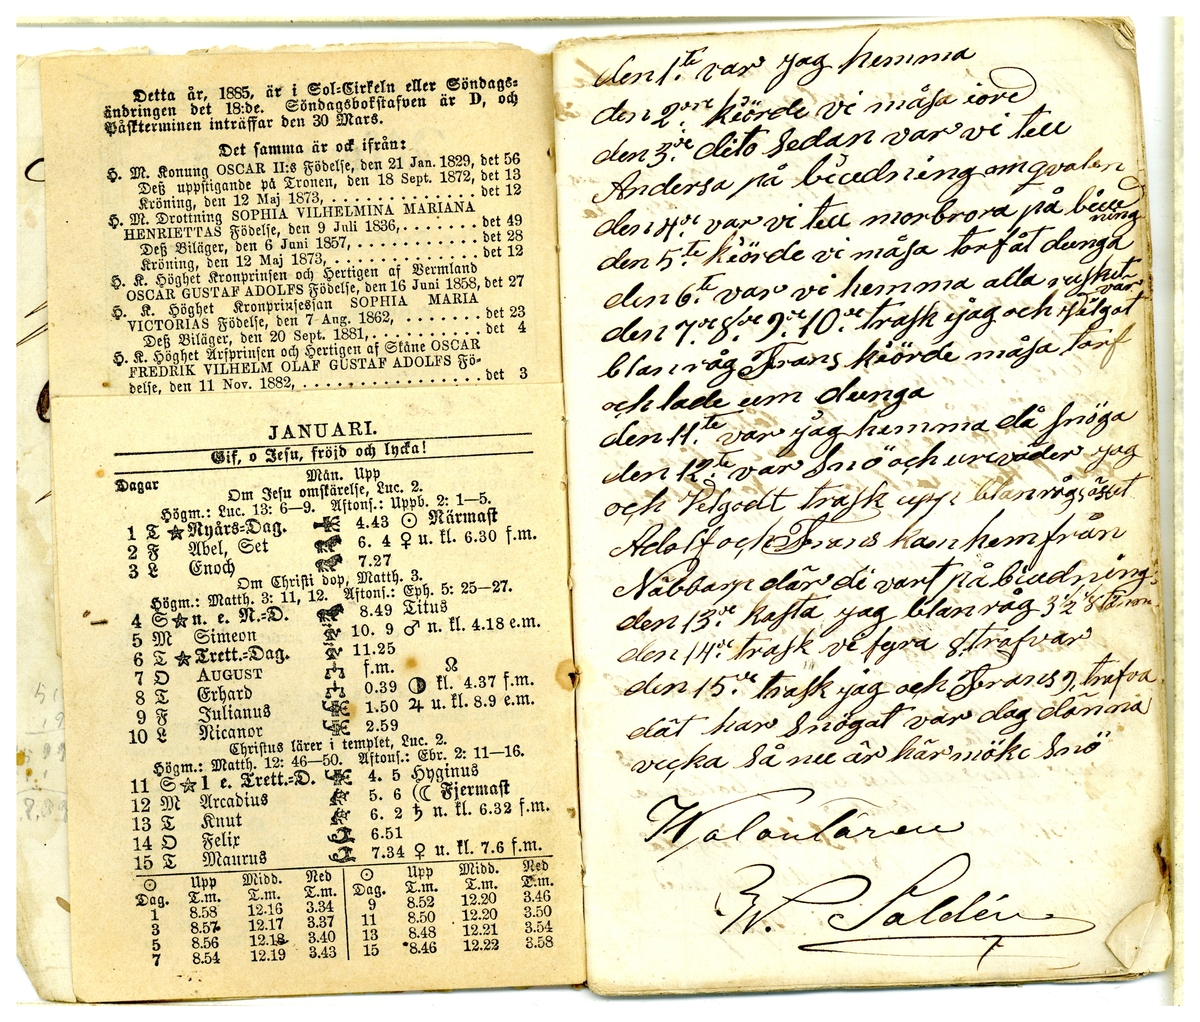 Detta år, 1885, är i Sol-Cirkeln eller Söndags-
ändringen det 18:de. Söndagsbokstafven är D, och
Påskterminen inträffar den 30 Mars.
Det samma är ock ifrån:
H. M. Konung OSCAR II:s Födelse, den 21 Jan. 1829, det 56
Deß uppstigande på Tronen, den 18 Sept. 1872, det 13
Kröning, den 12 Maj 1873, . . . . . . . . . . . . . . . det 12
H. M. Drottning SOPHIA VILHELMINA MARIANA
HENRIETTAS Födelse, den 9 Juli 1836, . . . . . . . det 49
Deß Biläger, den 6 Juni 1857, . . . . . . . . . . . . det 28
Kröning, den 12 Maj 1873, . . . . . . . . . . . . . . det 12
H. K. Höghet Kronprinsen och Hertigen af Vermland
OSCAR GUSTAF ADOLFS Födelse, den 16 Juni 1858, det 27
H. K. Höghet Kronprinsessan SOPHIA MARIA
VICTORIAS Födelse, den 7 Aug. 1862, . . . . . . . det 23
Deß Biläger, den 20 Sept. 1881, . . . . . . . . . . . det 4
H. K. Höghet Arfprinsen och Hertigen af Skåne OSCAR
FREDRIK VILHELM OLAF GUSTAF ADOLFS Fö-
delse, den 11 Nov. 1882, . . . . . . . . . . . . . . . . det 3
JANUARI.
Gif, o Jesu, fröjd och lycka!
Dagar Mån. Upp
Om Jesu omskärelse, Luc. 2.
Högm.: Luc. 13: 6–9. Aftons.: Uppb. 2: 1–5.
1 T ☆ Nyårs-Dag. 4.43 ☉ Närmast
2 F Abel, Set 6. 4 ♀ u. kl. 6.30 f.m.
3 L Enoch 7.27
Om Christi dop, Matth. 3.
Högm.: Matth. 3: 11, 12. Aftons.: Eph. 5: 25–27.
4 S ☆ n. e. N.-D. 8.49 Titus
5 M Simeon 10. 9 ♂ n. kl. 4.18 e.m.
6 T ☆ Trett.-Dag. 11.25
7 O AUGUST f.m. ☊
8 T Erhard 0.39 ◑ kl. 4.37 f.m.
9 F Julianus 1.50 ♃ u. kl. 8.9 e.m.
10 L Nicanor 2.59
Christus lärer i templet, Luc. 2.
Högm.: Matth. 12: 46–50. Aftons.: Ebr. 2: 11–16.
11 S ☆ 1 e. Trett.-D. 4. 5 Hyginus
12 M Arcadius 5. 6 ☾ Fjermast
13 T Knut 6. 2 ♄ n. kl. 6.32 f.m.
14 O Felix 6.51
15 T Maurus 7.34 ♀ u. kl. 7.6 f.m.
☉ Upp Midd. Ned ☉ Upp Midd. Ned
Dag. T.m. T.m. T.m. Dag. T.m. T.m. T.m.
1 8.58 12.16 3.34 9 8.52 12.20 3.46
3 8.57 12.17 3.37 11 8.50 12.20 3.50
5 8.56 12.18 3.40 13 8.48 12.21 3.54
7 8.54 12.19 3.43 15 8.46 12.22 3.58
den 1.te var jag hemma
den 2.dre kiörde vi måsa iord
den 3.ie dito Sedan var vi tell
Andersa på biudning om qvalen
den 4.de var vi tell morbrora på biu
ning
den 5.te kiörde vi måsa torf åt dunga
den 6.te var vi hemma alla rusket
var
den 7.de 8.de 9.de 10.de trask jag och Velgot
blanråg Frans kiörde måsa torf
och lade um dunga
den 11.te var jag hemma då snöga
den 12.te var Snö och urväder jag
och Velgodt trask upp blanrågsässet
Adolf och Frans kam hem från
Näbbarp där di vart på biudning
den 13.de kasta jag blanråg 3 1/2
den 14.de trask vi fyra 8, trafvar
den 15.de trask jag och Frans 9, trafva
dät har Snögat var dag dänna
vecka Så nu är här möke Snö
Walontären
W. Saldén